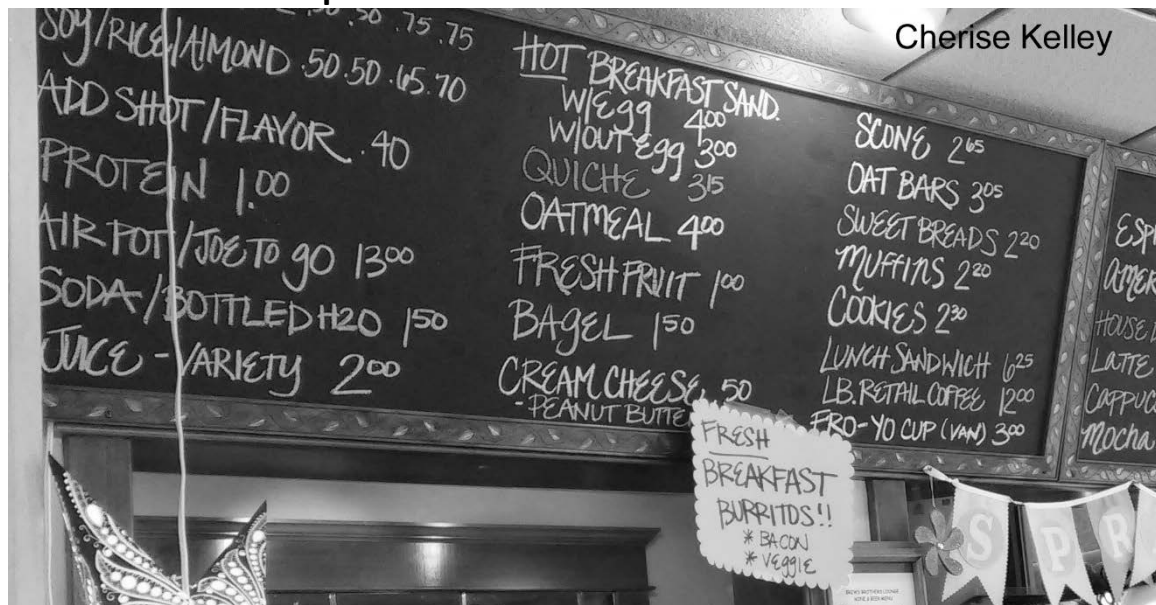 Cherise Kelley
.50 .50 .75 .75
SOY/RICE/AlMOND .50 .50 .65 .70
ADD SHOT/FLAVOR .40
PROTEIN 1.00
AIR POT/JOE TO gO 1300
SODA/BOTTLED H20 150
JUICE - VARIETY 200
HOT BREAKFAST SAND.
W/Egg 400
W/OUT Egg 300
QUICHE 315
OATMEAL 400
FRESH FRUIT 100
BAGEL 150
CREAM CHEESE, 50
- PEANUT
SCONE 265
OAT BARS 305
SWEET BREADS 220
MUFFINS 220
COOKIES 230
LUNCH SANDWICH 625
LB. RETAIL COFFEE 1200
FRO-YO CUP (VAN) 300
HOUSE
LATTE
Mocha
FRESH
BREAKFAST
BURRITOS!!
* BACON
* VEggIE
S P R